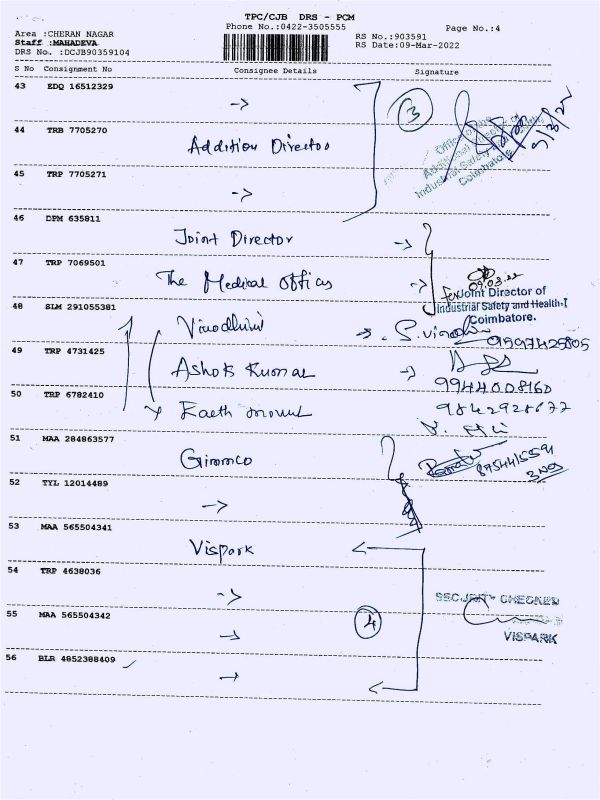 TPC/CJB DRS - PCM
Phone No.:0422-3505555
Page No.:4
Area :CHERAN NAGAR
RS No.:903591
Staff :MAHADEVA
RS Date:09-Mar-2022
DRS No. :DCJB90359104
S No Consignment No Consignee Details Signature
43 EDQ 16512329
3
44 TRB 7705270
Addition Director
Industrial Safety
Coimbatore
45 TRP 7705271
46 DPM 635811
Joint Director
47 TRP 7069501
The Medical Officer
09.03.22
for Joint Director of
Industrial Safety and Health-I
Coimbatore.
48 SLM 291055381
Vinodhini
9597425805
49 TRP 4731425
Ashok Kumar
9944008160
50 TRP 6782410
Earth
9842928677
51 MAA 284863577
8754415591
52 TYL 12014489
53 MAA 565504341
Vispark
54 TRP 4638036
SECURITY CHECKED
55 MAA 565504342
4
VISPARK
56 BLR 4852388409